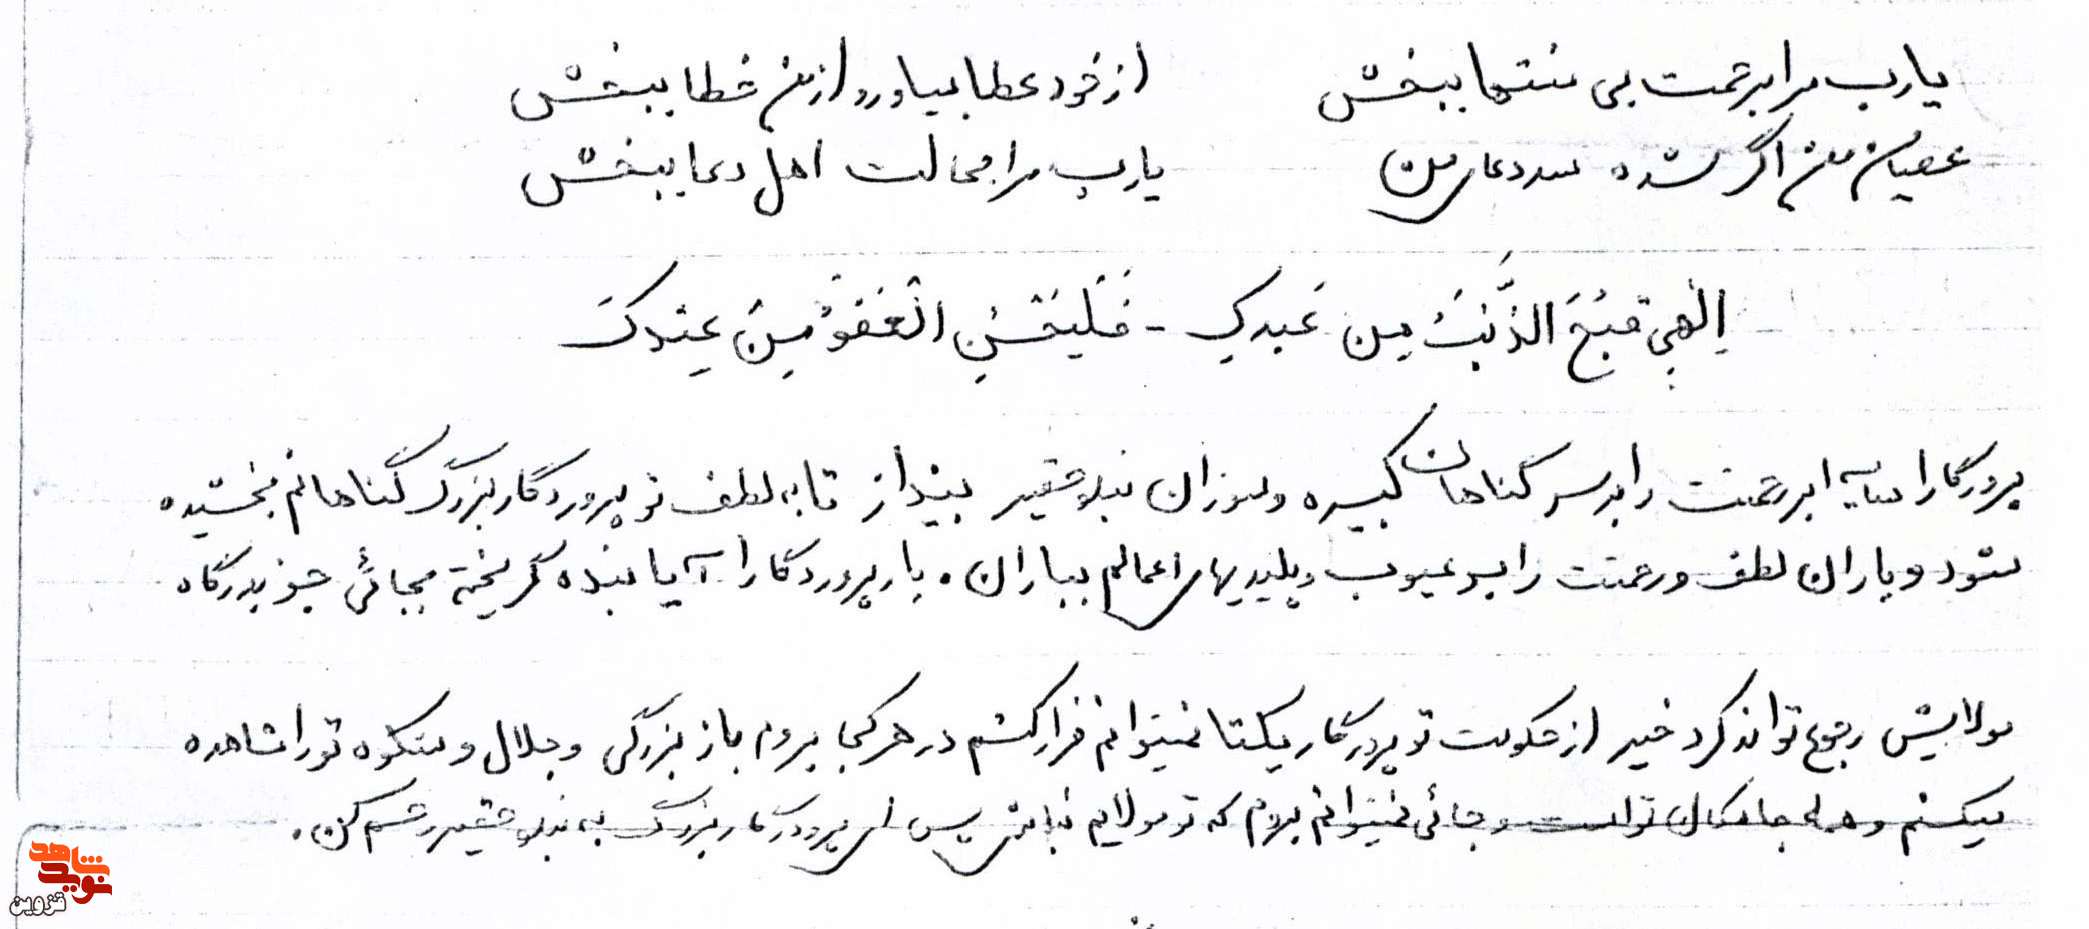 یارب مرا برحمت بی منتها ببخش از خود عطا بیاور و از من خطا ببخش
عصیان من اگر شده سد دعای من یارب مرا بحالت اهل دعا ببخش
اِلٰهی قَبُحَ الذَّنبُ مِن عَبدِکَ - فَلْیَحْسُنِ الْعَفْوُ مِنْ عِنْدِکَ
پرودگارا سایه ابر رحمتت را بر سر گناهان کبیره و سوزان بنده حقیر بینداز تا به لطف تو پروردگار بزرگ گناهانم بخشیده
شود و باران لطف و رحمتت را بر عیوب و پلیدیهای اعمالم بباران . بار پروردگارا آیا بنده گریخته بجائی جز بدرگاه
مولایش رجوع تواند کرد خیر از حکومت تو پرودرگار یکتا نمیتوانم فرار کنم در هر کجا بروم باز بزرگی و جلال و شکوه تو را مشاهده
میکنم و همه جا مکان تو است و جائی نمیتوانم بروم که تو مولایم نباشی پس ای پرودرگار بزرگ به بنده حقیر رحم کن .
نوید شاهد
قزوین